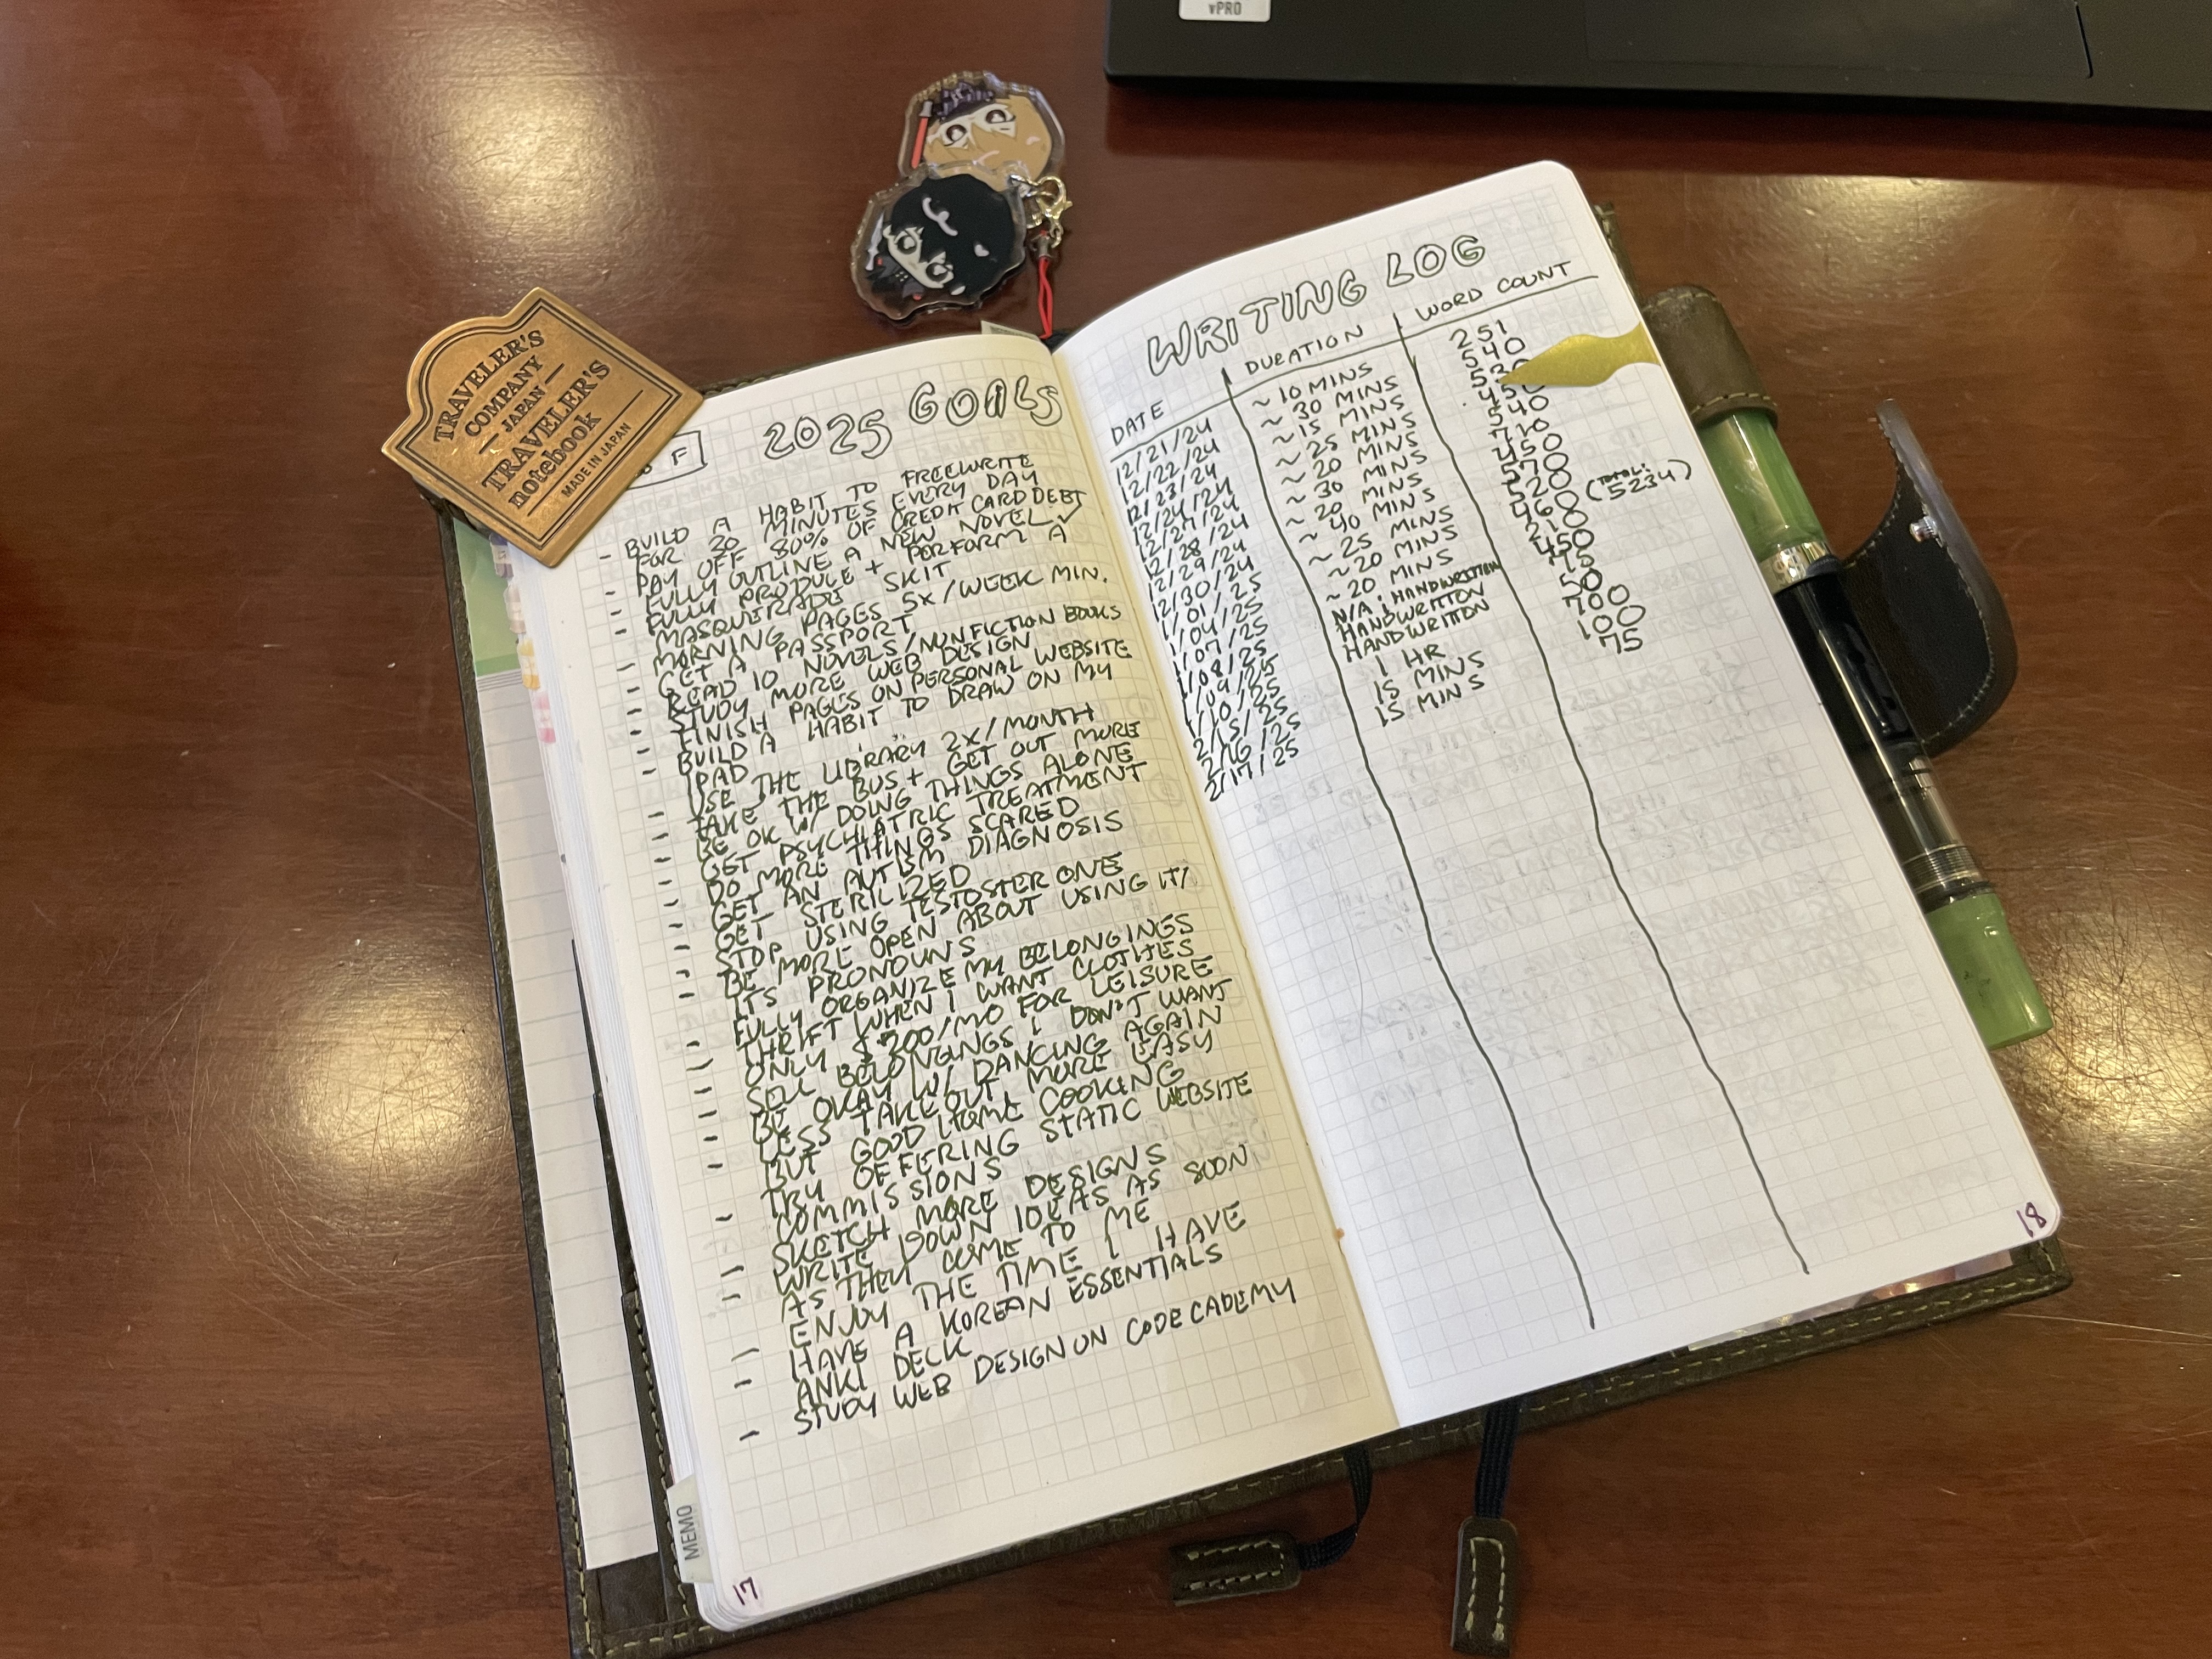 vPRO
TRAVELER'S
COMPANY
JAPAN
TRAVELER'S
notebook
MADE IN JAPAN
F
2025 GOALS
- BUILD A HABIT TO FREEWRITE
FOR 30 MINUTES EVERY DAY
- PAY OFF 80% OF CREDIT CARD DEBT
- FULLY OUTLINE A NEW NOVEL ✓
- FULLY PRODUCE + PERFORM A
MASQUERADE SKIT
- MORNING PAGES 5X/WEEK MIN.
- GET A PASSPORT
- READ 10 NOVELS/NONFICTION BOOKS
- STUDY MORE WEB DESIGN
- FINISH PAGES ON PERSONAL WEBSITE
- BUILD A HABIT TO DRAW ON MY
IPAD
- USE THE LIBRARY 2X/MONTH
- TAKE THE BUS + GET OUT MORE
- BE OK W/ DOING THINGS ALONE
- GET PSYCHIATRIC TREATMENT
- DO MORE THINGS SCARED
- GET AN AUTISM DIAGNOSIS
- GET STERILIZED
- STOP USING TESTOSTERONE
- BE MORE OPEN ABOUT USING IT/
ITS PRONOUNS
- FULLY ORGANIZE MY BELONGINGS
- THRIFT WHEN I WANT CLOTHES
- ONLY $200/MO FOR LEISURE
- SELL BELONGINGS I DON'T WANT
- BE OKAY W/ DANCING AGAIN
- LESS TAKEOUT, MORE EASY
BUT GOOD HOME COOKING
- TRY OFFERING STATIC WEBSITE
COMMISSIONS
- SKETCH MORE DESIGNS
- WRITE DOWN IDEAS AS SOON
AS THEY COME TO ME
- ENJOY THE TIME I HAVE
- HAVE A KOREAN ESSENTIALS
ANKI DECK
- STUDY WEB DESIGN ON CODECADEMY
MEMO
17
WRITING LOG
DATE DURATION WORD COUNT
12/21/24 ~ 10 MINS 251
12/22/24 ~ 30 MINS 540
12/23/24 ~ 15 MINS
12/24/24 ~ 25 MINS
12/27/24 ~ 20 MINS 540
12/28/24 ~ 30 MINS 710
12/29/24 ~ 20 MINS 450
12/30/24 ~ 40 MINS 570
1/01/25 ~ 25 MINS 520 (TOTAL: 5234)
1/04/25 ~ 20 MINS
1/07/25 ~ 20 MINS
1/08/25 N/A; HANDWRITTON
1/09/25 HANDWRITTON
1/10/25 HANDWRITTON
2/15/25 1 HR 700
2/16/25 15 MINS 100
2/17/25 15 MINS 75
18